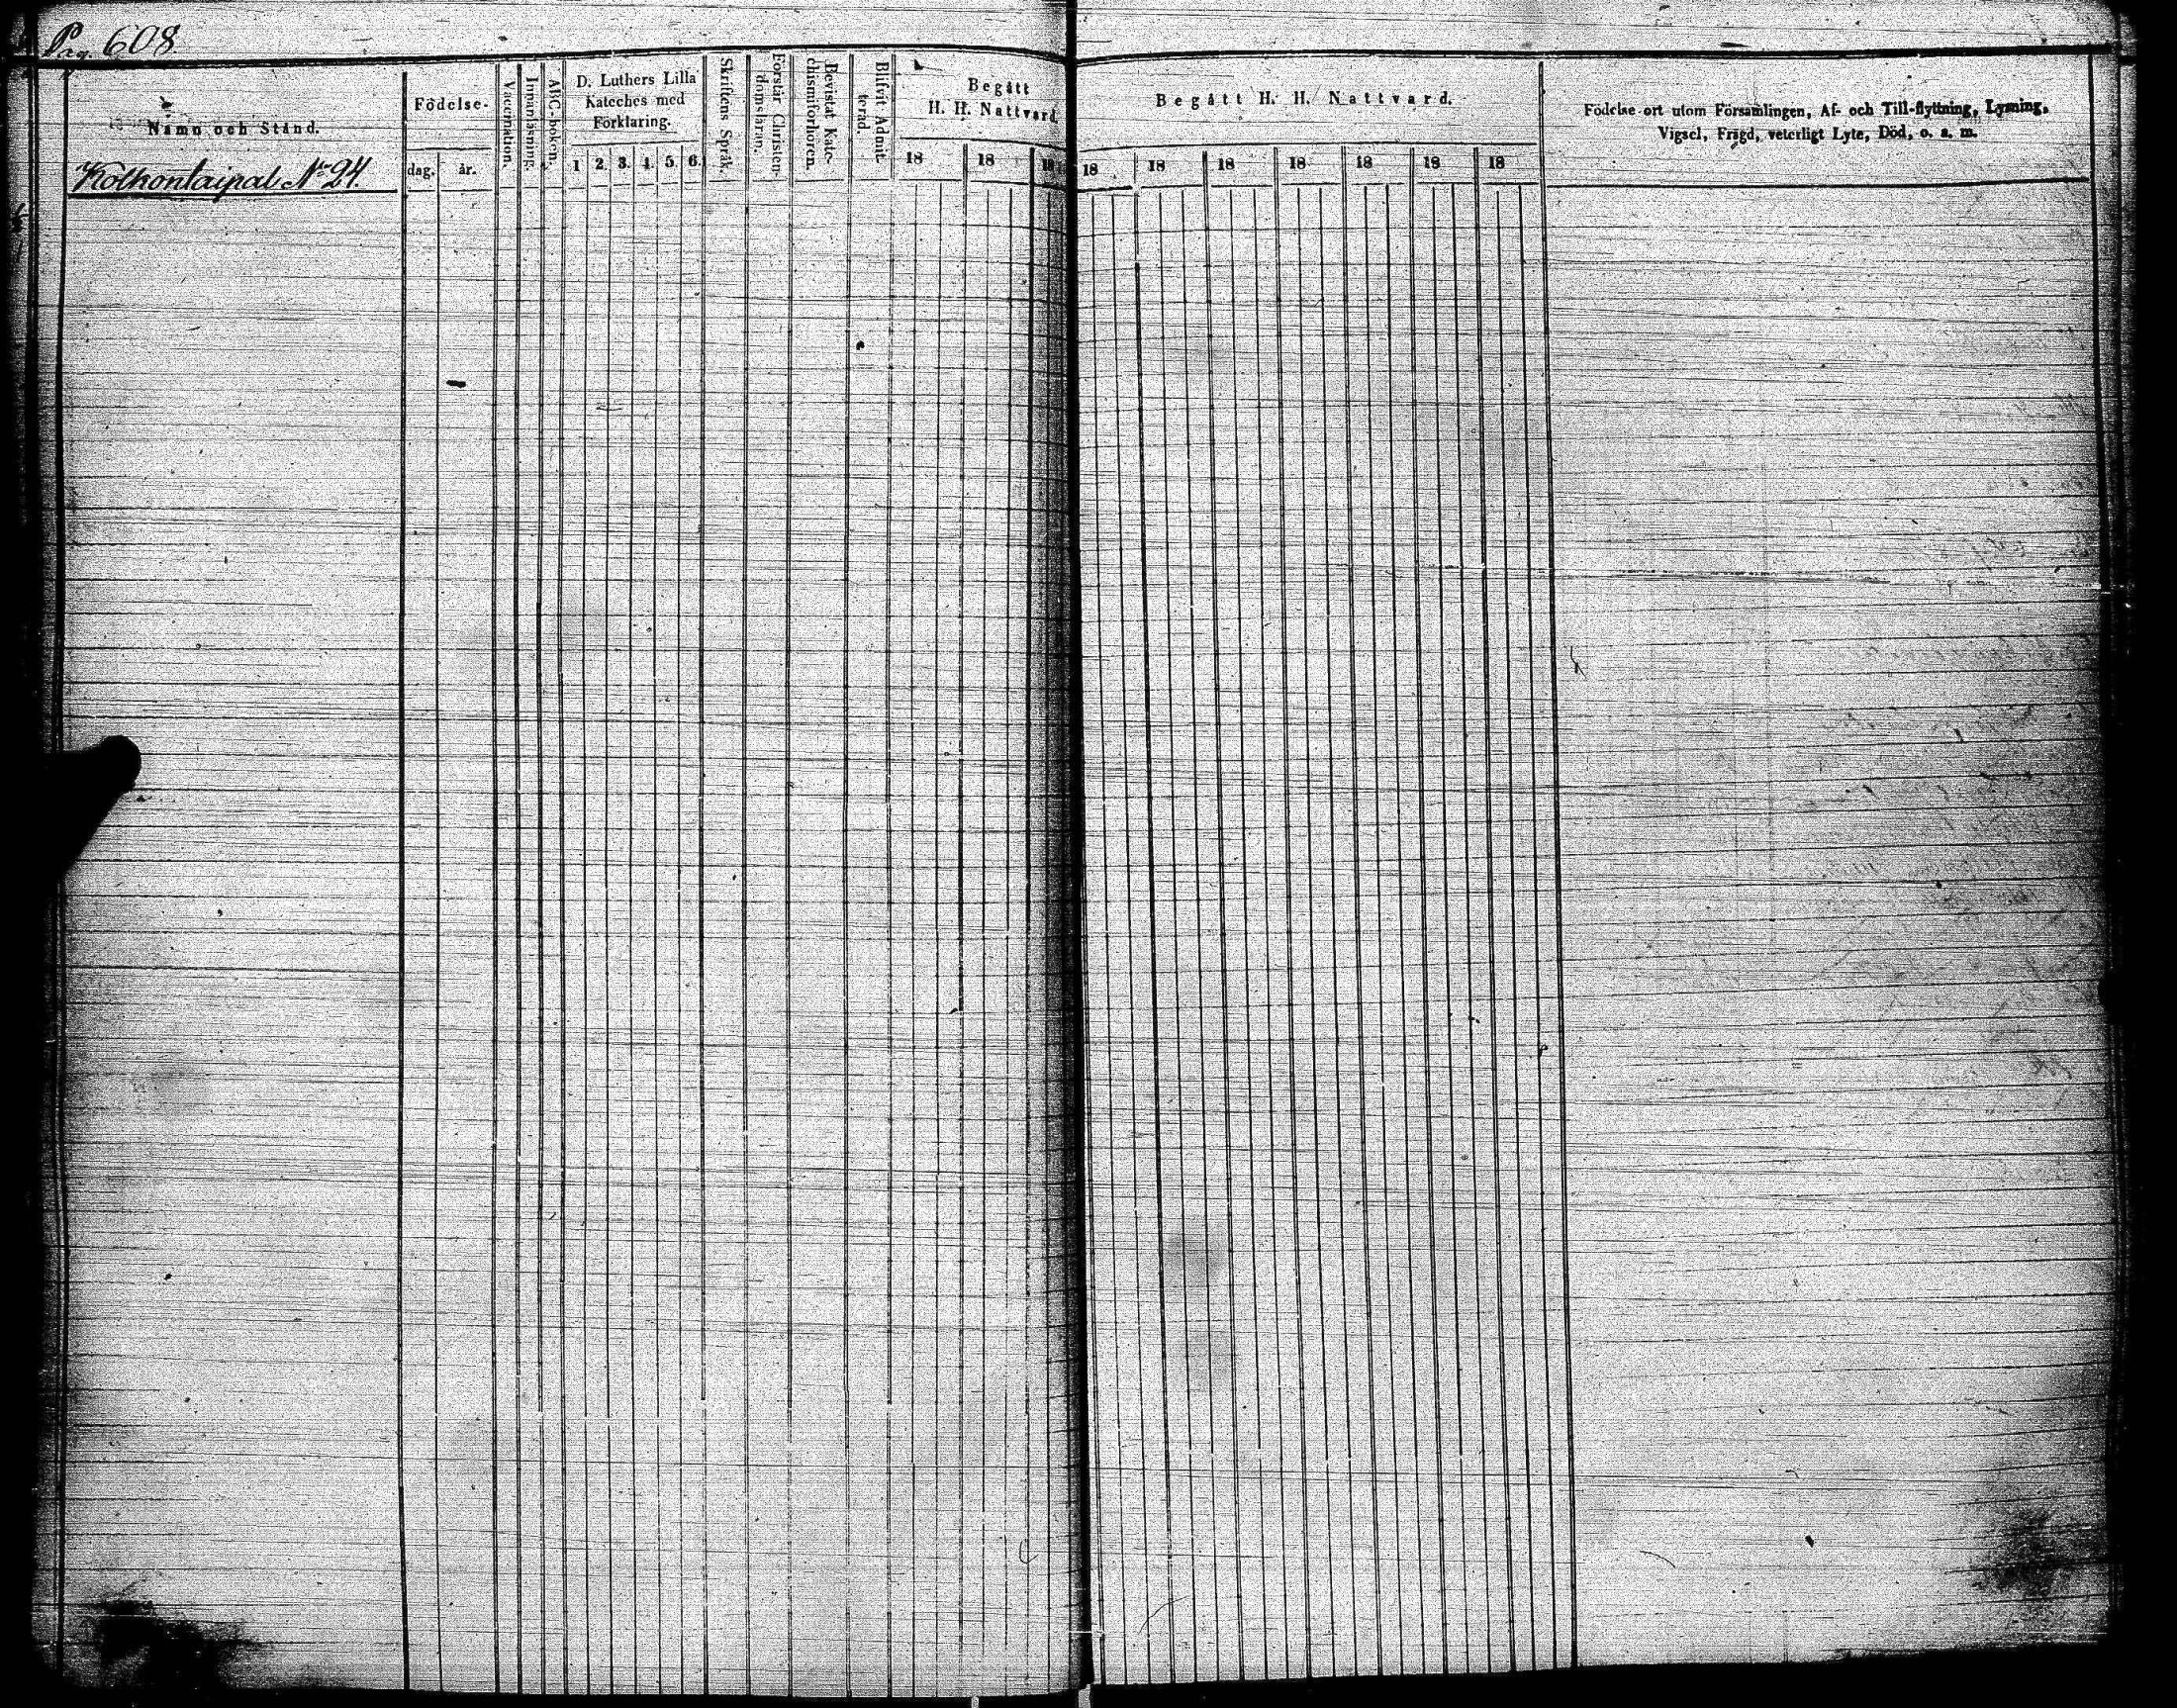 Pag. 608
Namn och Stånd.
Kolkontaipal No 24.
Födelse-
dag. år.
Vaccination.
Innanläsning.
ABC-boken.
D. Luthers Lilla
Kateches med
Förklaring.
1 2. 3. 4. 5. 6.
Skriftens Språk.
Förstår Christen-
domsläran.
Bevistat Kate-
chismiförhören.
Blifvit Admit-
terad.
Begått
H. H. Nattvard.
18 18 18
Begått H. H. Nattvard.
18 18 18 18 18 18 18
Födelse-ort utom Församlingen, Af- och Till-flyttning, Lysning,
Vigsel, Frägd, veterligt Lyte, Död, o. s. m.